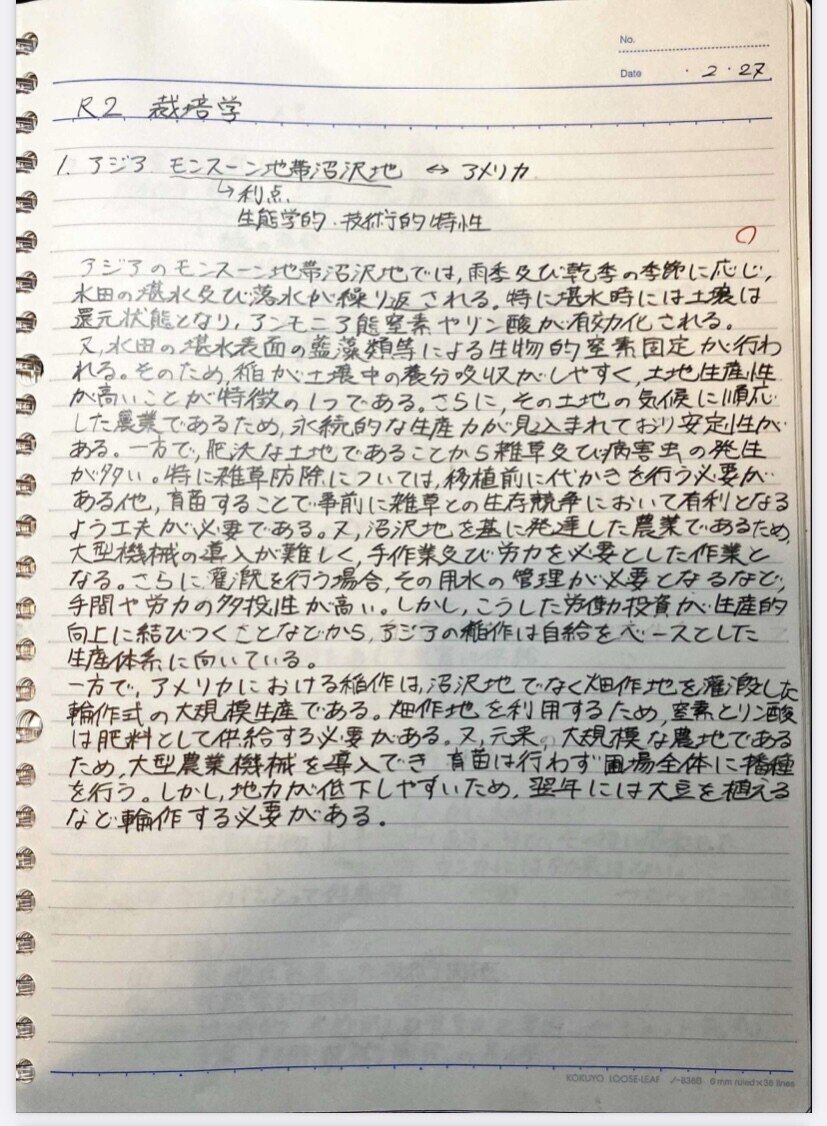 No.
Date ・2・27
R2 栽培学
1. アジア モンスーン地帯沼沢地 ↔ アメリカ
↳利点
生態学的・技術的特性
アジアのモンスーン地帯沼沢地では,雨季及び乾季の季節に応じ,
水田の堪水及び落水が繰り返される。特に堪水時には土壌は
還元状態となり,アンモニア態窒素やリン酸が有効化される。
又,水田の堪水表面の藍藻類等による生物的窒素固定が行わ
れる。そのため,稲が土壌中の養分吸収がしやすく,土地生産性
が高いことが特徴の1つである。さらに,その土地の気候に順応
した農業であるため,永続的な生産力が見込まれており安定性が
ある。一方で,肥沃な土地であることから雑草及び病害虫の発生
が多い。特に雑草防除については,移植前に代かきを行う必要が
ある他,育苗することで事前に雑草との生存競争において有利となる
よう工夫が必要である。又,沼沢地を基に発達した農業であるため,
大型機械の導入が難しく,手作業及び労力を必要とした作業と
なる。さらに灌漑を行う場合,その用水の管理が必要となるなど,
手間や労力の多投性が高い。しかし,こうした労働投資が生産的
向上に結びつくことなどから,アジアの稲作は自給をベースとした
生産体系に向いている。
一方で,アメリカにおける稲作は,沼沢地でなく畑作地を灌漑した
輪作式の大規模生産である。畑作地を利用するため,窒素とリン酸
は肥料として供給する必要がある。又,元来,大規模な農地である
ため,大型農業機械を導入でき 育苗は行わず圃場全体に播種
を行う。しかし,地力が低下しやすいため,翌年には大豆を植える
など輪作する必要がある。
KOKUYO LOOSE-LEAF ノ-836B 6mm ruled×36 lines